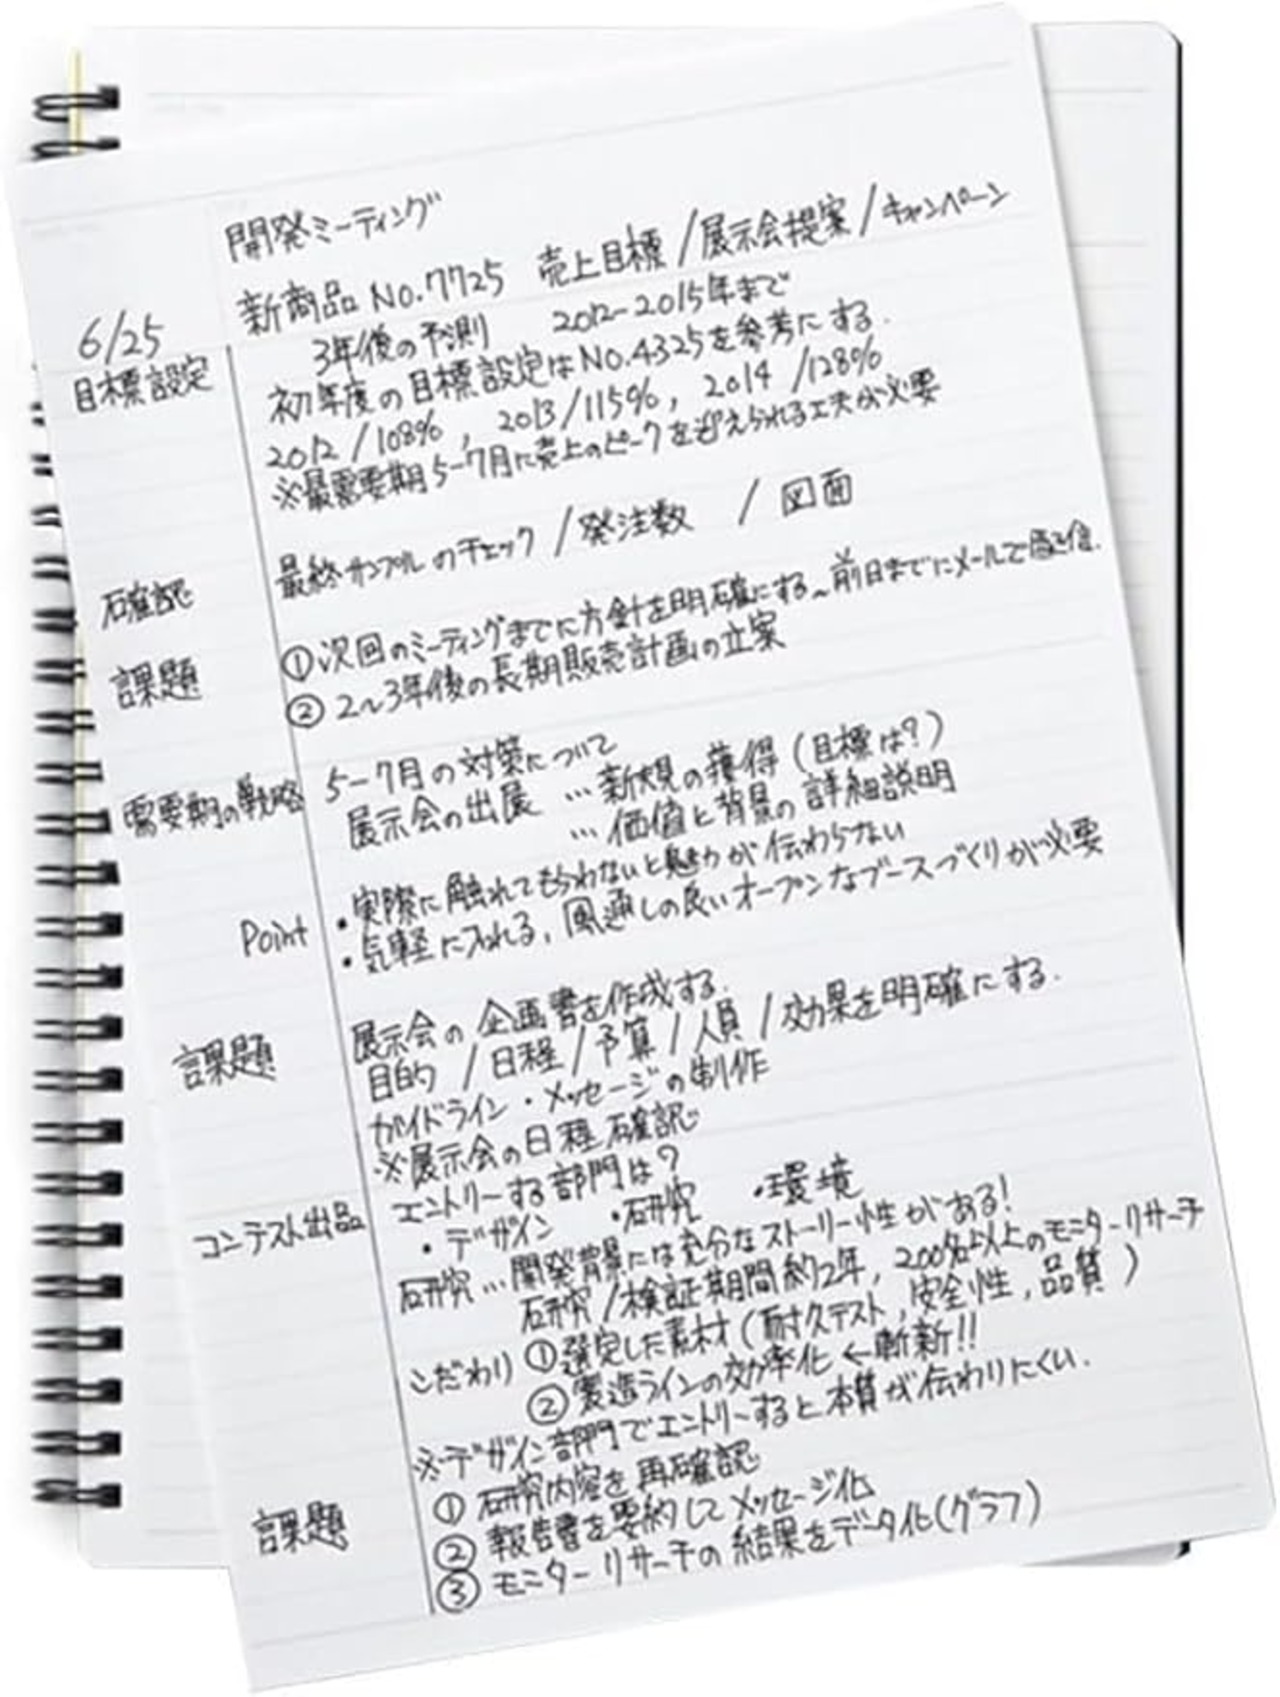 開発ミーティング
6/25 新商品No.7725 売上目標/展示会提案/キャンペーン
目標設定 3年後の予測 2012-2015年まで
初年度の目標設定はNo.4325を参考にする.
2012/108%, 2013/115%, 2014/128%
※最需要期5-7月に売上のピークを迎えられる工夫が必要
確認 最終サンプルのチェック/発注数 /図面
課題 ①次回のミーティングまでに方針を明確にする~前日までにメールで配信.
②2~3年後の長期販売計画の立案
需要期の戦略 5-7月の対策について
展示会の出展 …新規の獲得(目標は?)
…価値と背景の詳細説明
Point ・実際に触れてもらわないと魅力が伝わらない
・気軽に入れる, 風通しの良いオープンなブースづくりが必要
課題 展示会の企画書を作成する.
目的/日程/予算/人員/効果を明確にする.
ガイドライン・メッセージの制作
※展示会の日程確認
コンテスト出品 エントリーする部門は?
・デザイン ・研究 ・環境
研究…開発背景には充分なストーリー性がある!
研究/検証期間約2年, 200名以上のモニターリサーチ
こだわり ①選定した素材(耐久テスト, 安全性, 品質)
②製造ラインの効率化←斬新!!
※デザイン部門でエントリーすると本質が伝わりにくい.
課題 ①研究内容を再確認
②報告書を要約してメッセージ化
③モニターリサーチの結果をデータ化(グラフ)